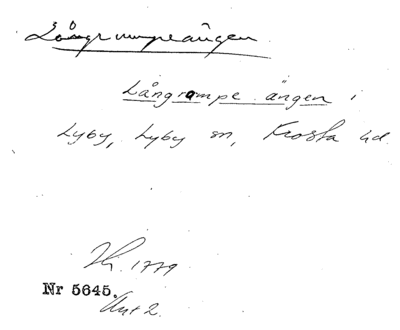 Långrumpeängen
Långrumpe ängen i
Lyby, Lyby sn, Frosta hd.
1779
Nr 5645.
Akt 2.